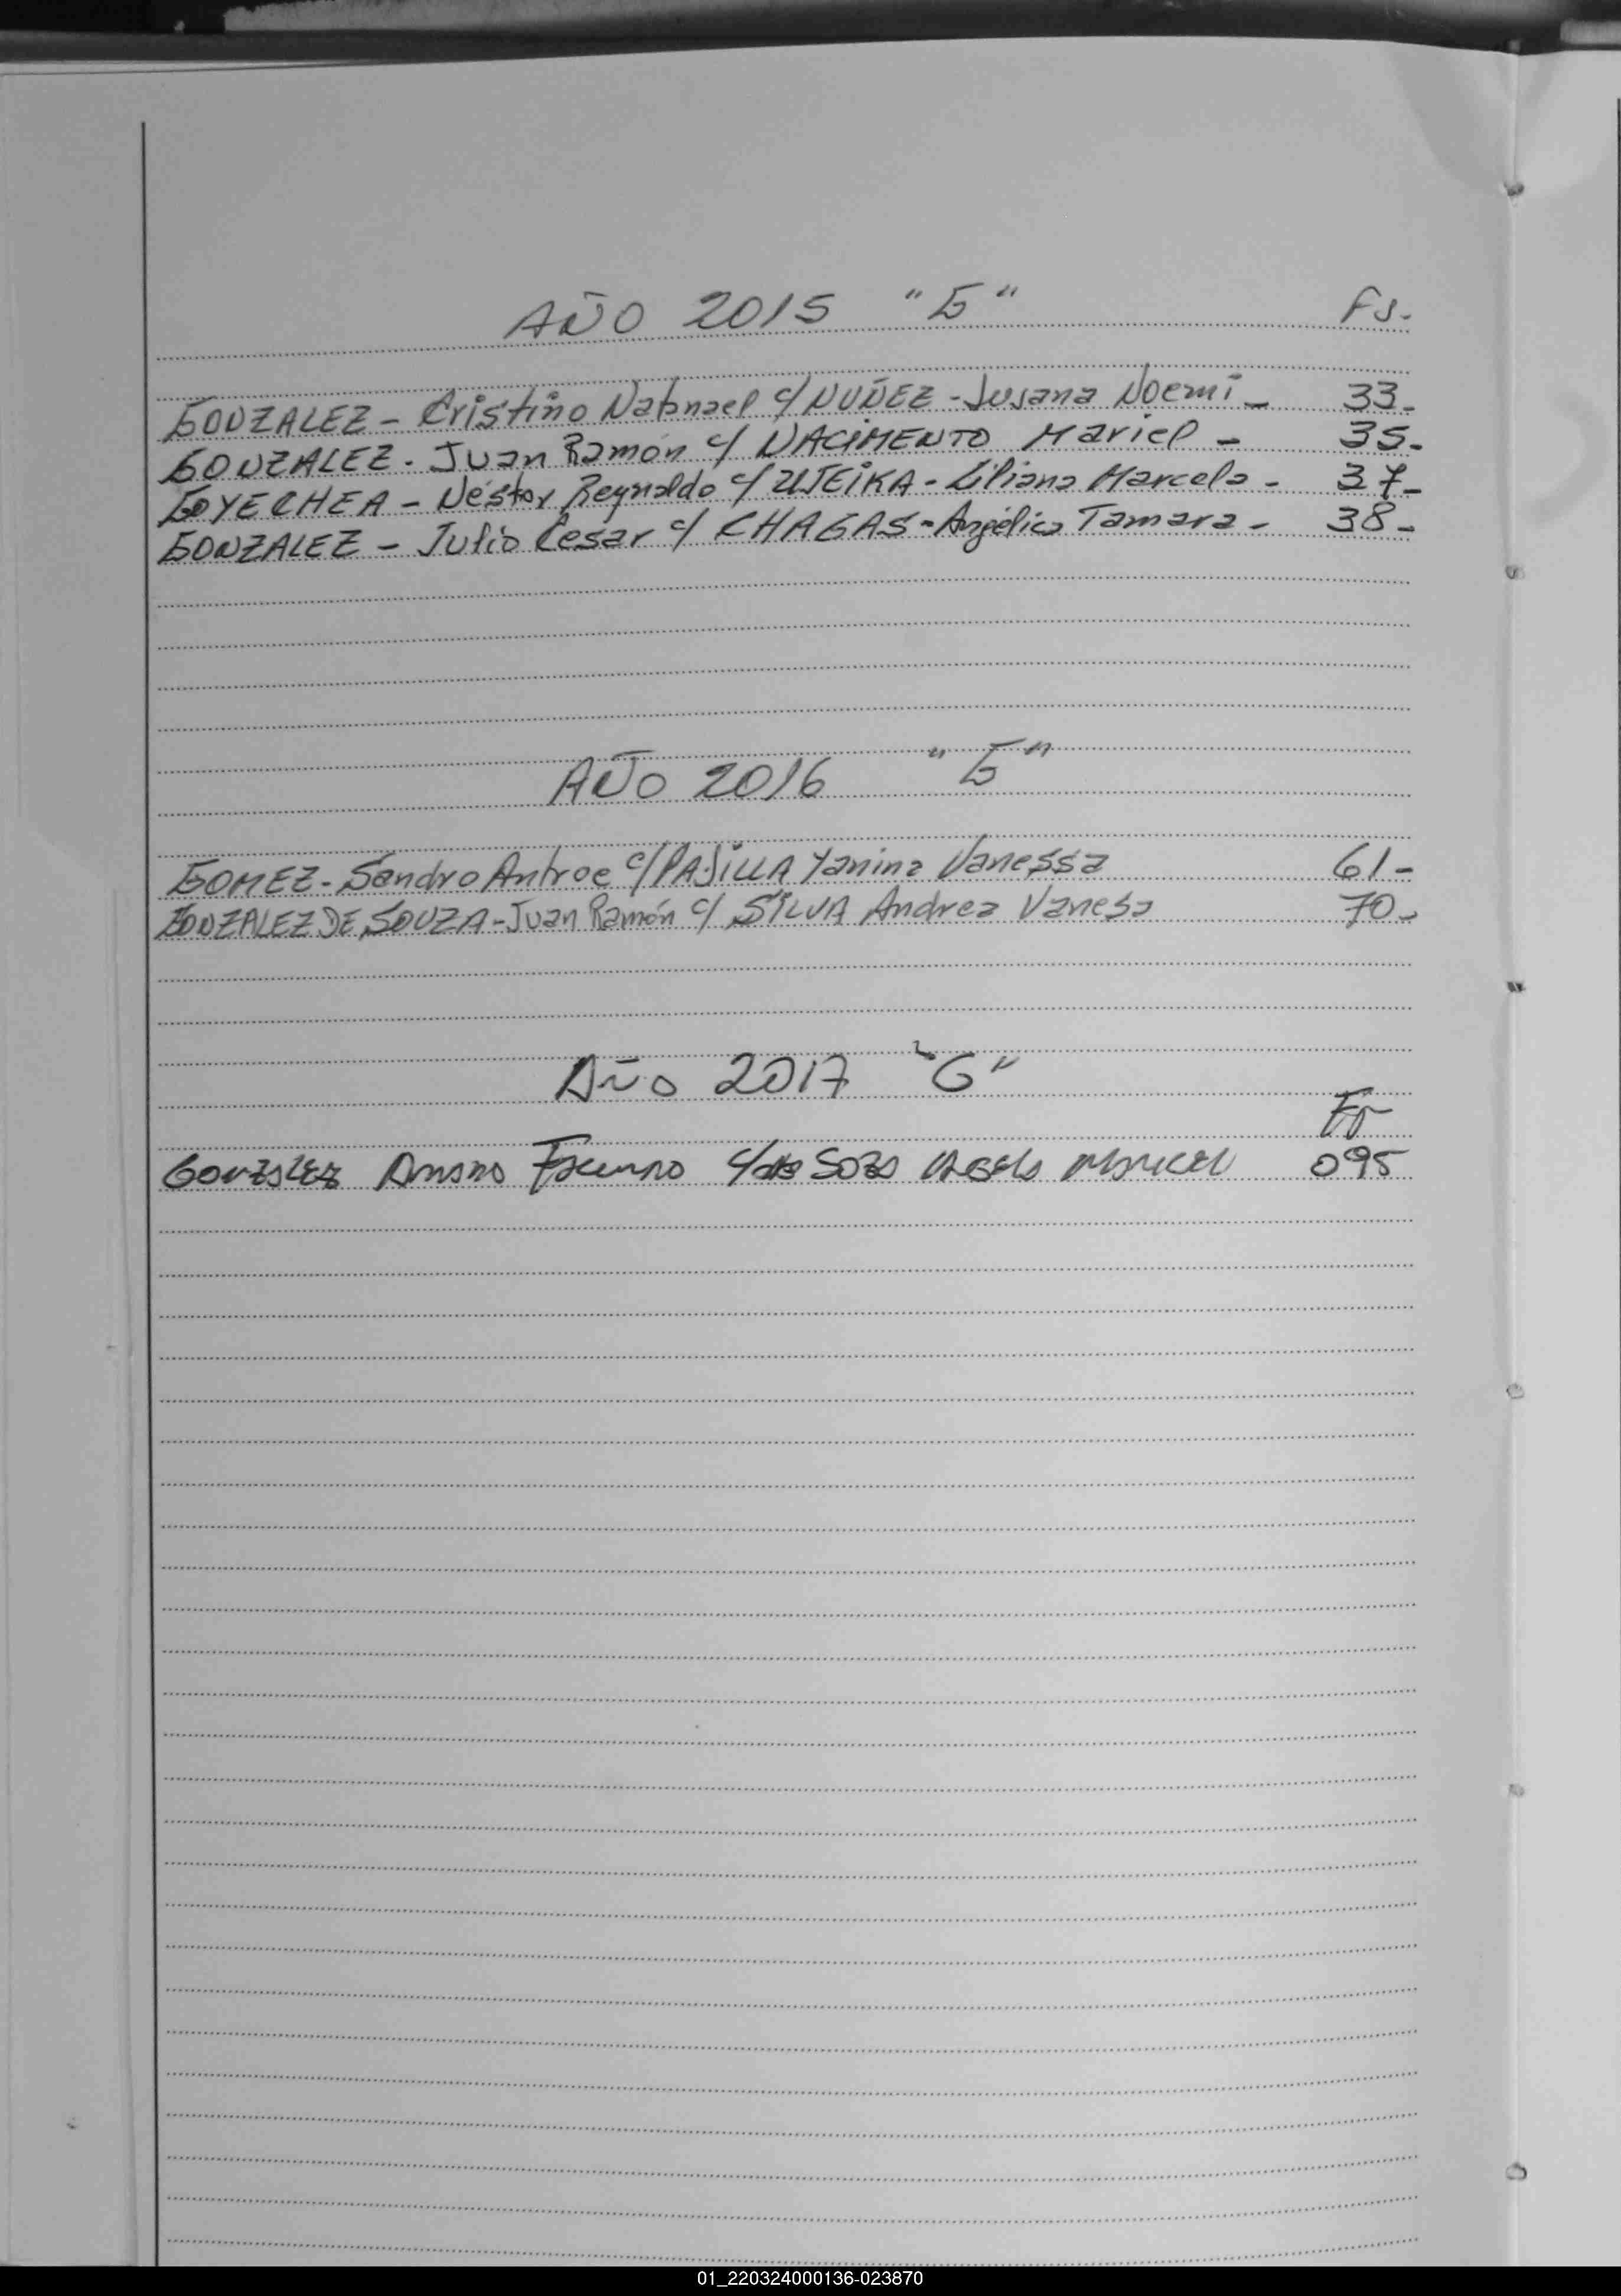 AÑO 2015 "G" Fs.
GONZALEZ - Cristino Natanael c/ NUÑEZ - Susana Noemi - 33-
GONZALEZ. Juan Ramón c/ NACIMENTO Mariel - 35-
GOYECHEA - Néstor Reynaldo c/ - Liliana Marcela - 37-
GONZALEZ - Julio Cesar c/ CHAGAS - Angélica Tamara - 38-
AÑO 2016 "G"
GOMEZ - Sandro c/ Yanina Vanessa 61-
GONZALEZ DE SOUZA - Juan Ramón c/ SILVA Andrea Vanesa 70-
Año 2017 "G"
Fs
GONZALEZ FACUNDO c/ MARICEL 095
01_220324000136-023870